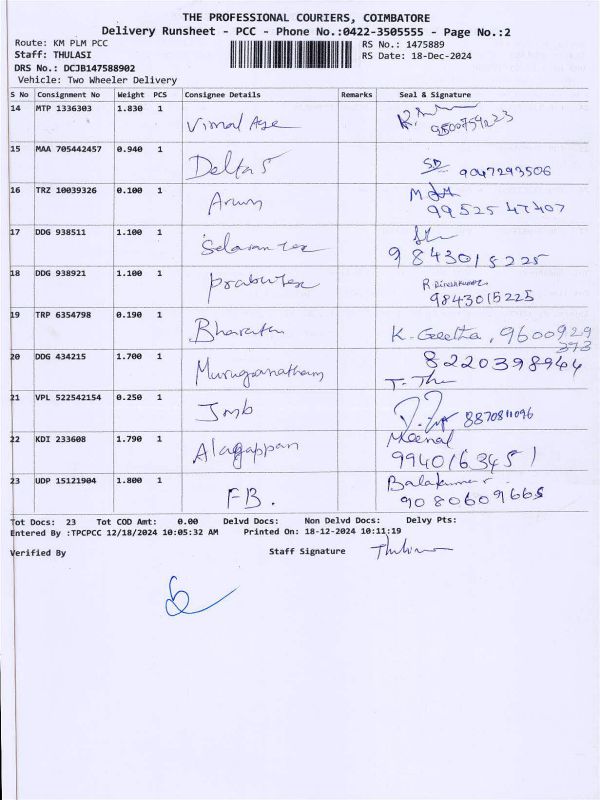 THE PROFESSIONAL COURIERS, COIMBATORE
Delivery Runsheet - PCC - Phone No.:0422-3505555 - Page No.:2
Route: KM PLM PCC RS No.: 1475889
Staff: THULASI RS Date: 18-Dec-2024
DRS No.: DCJB147588902
Vehicle: Two Wheeler Delivery
S No Consignment No Weight PCS Consignee Details Remarks Seal & Signature
14 MTP 1336303 1.830 1 Vimal Age
15 MAA 705442457 0.940 1 Delta 5 9047293506
16 TRZ 10039326 0.100 1 Arun 9952547407
17 DDG 938511 1.100 1 Selavan Tex 9843015225
18 DDG 938921 1.100 1 prabu Tex R Dineshkumar
9843015225
19 TRP 6354798 0.190 1 Bharath K. Geetha, 9600929
393
20 DDG 434215 1.700 1 Muruganatham 8220398944
21 VPL 522542154 0.250 1 Jmb 8870811096
22 KDI 233608 1.790 1 Alagappan Meenal
9940163451
23 UDP 15121904 1.800 1 FB. Balakumar
9080609665
Tot Docs: 23 Tot COD Amt: 0.00 Delvd Docs: Non Delvd Docs: Delvy Pts:
Entered By :TPCPCC 12/18/2024 10:05:32 AM Printed On: 18-12-2024 10:11:19
Verified By Staff Signature